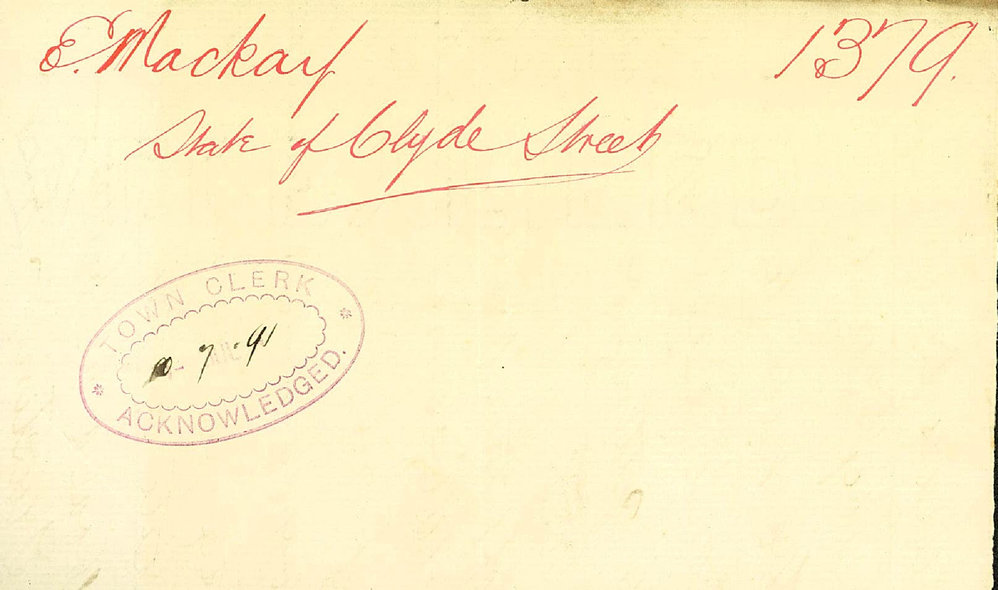 E. Mackay 1379.
State of Clyde Street
TOWN CLERK
10 · 7 · 91
ACKNOWLEDGED.